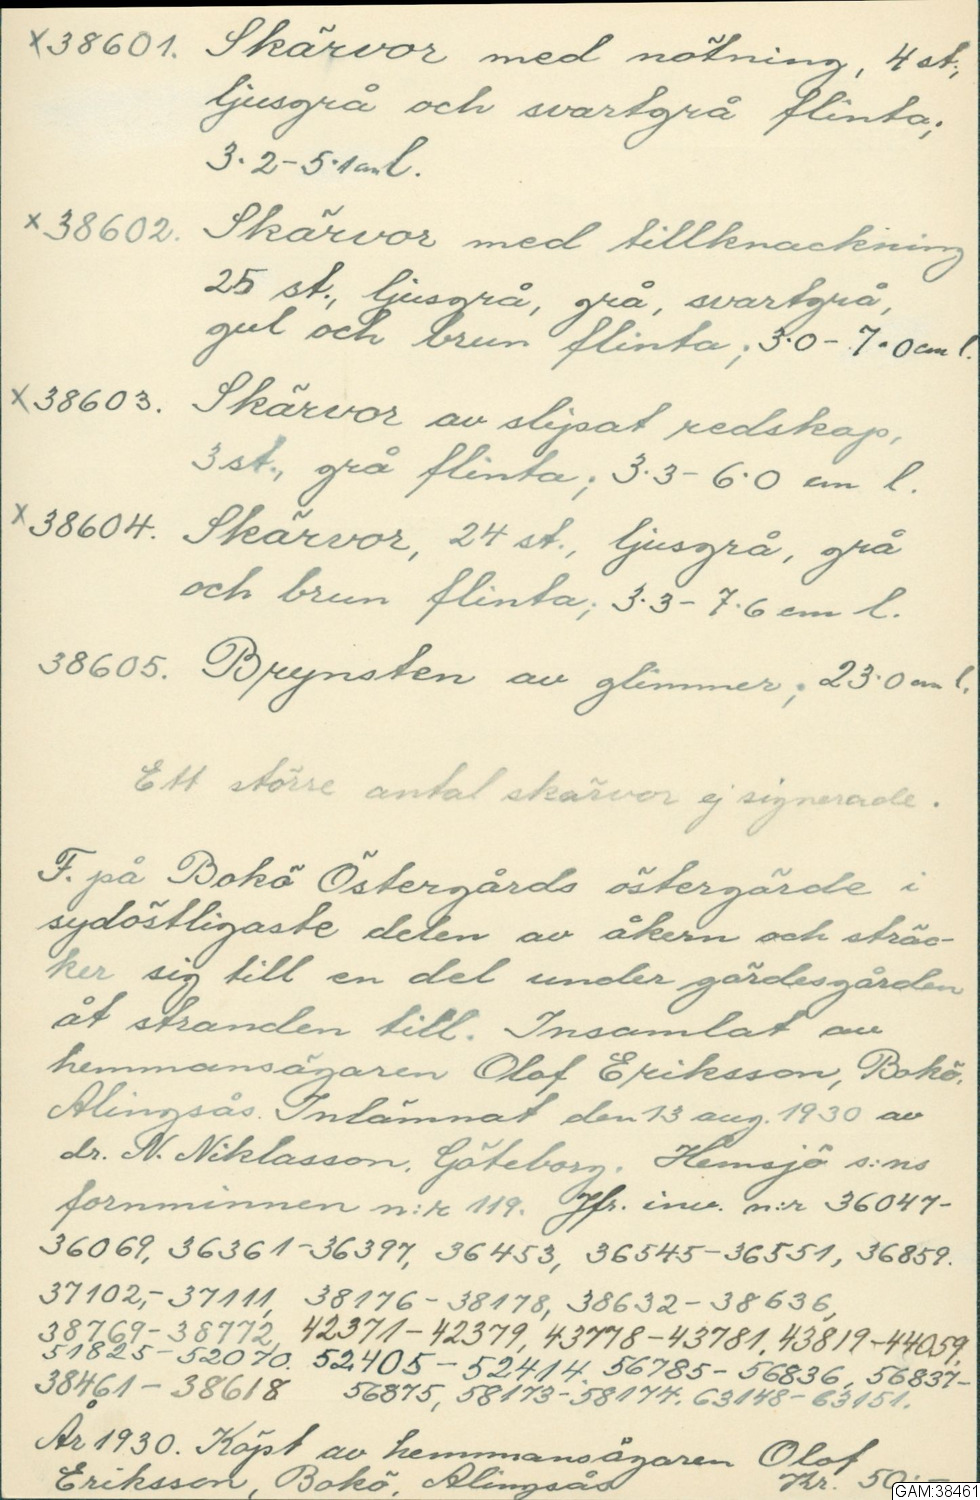 x38601. Skärvor med nötning, 4 st.,
ljusgrå och svartgrå flinta;
3.2-5.1 cm l.
x38602. Skärvor med tillknackning
25 st., ljusgrå, grå, svartgrå,
gul och brun flinta; 3.0-7.0 cm l.
x38603. Skärvor av slipat redskap,
3 st., grå flinta; 3.3-6.0 cm l.
x38604. Skärvor, 24 st., ljusgrå, grå
och brun flinta; 3.3-7.6 cm l.
38605. Brynsten av glimmer; 23.0 cm l.
Ett större antal skärvor ej signerade.
F. på Bokö Östergårds östergärde i
sydöstligaste delen av åkern och sträc-
ker sig till en del under gärdesgården
åt stranden till. Insamlat av
hemmansägaren Olof Eriksson, Bokö,
Alingsås. Inlämnat den 13 aug. 1930 av
dr. N. Niklasson, Göteborg. Hemsjö s:ns
fornminnen n:r 119. Jfr. inv. n:r 36047-
36069, 36361-36397, 36453, 36545-36551, 36859.
37102,-37111, 38176-38178, 38632-38636,
38769-38772, 42371-42379, 43778-43781, 43819-44059,
51825-52070. 52405-52414, 56785-56836, 56837-
38461-38618 56875, 58173-58174. 63148-63151.
År 1930. Köpt av hemmansägaren Olof
Eriksson, Bokö, Alingsås Kr. 50:-
GAM:38461